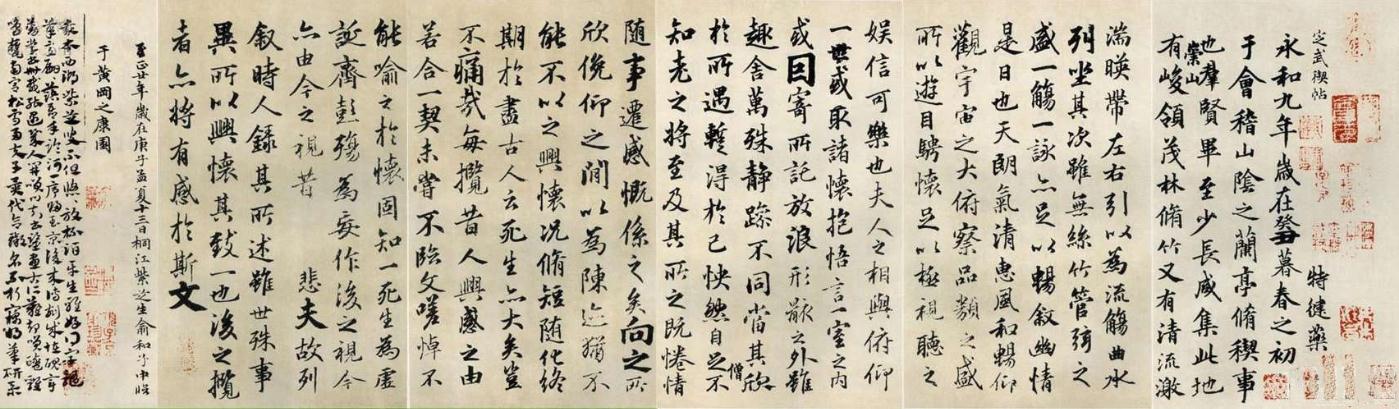 定武禊帖
特健藥
永和九年歲在癸丑暮春之初
于會稽山陰之蘭亭脩稧事
也羣賢畢至少長咸集此地
崇山
有峻領茂林脩竹又有清流激
湍暎帶左右引以為流觴曲水
列坐其次雖無絲竹管弦之
盛一觴一詠亦足以暢敘幽情
是日也天朗氣清惠風和暢仰
觀宇宙之大俯察品類之盛
所以遊目騁懷足以極視聽之
娛信可樂也夫人之相與俯仰
一世或取諸懷抱悟言一室之內
或因寄所託放浪形骸之外雖
趣舍萬殊靜躁不同當其欣
於所遇蹔得於己怏然自足不
僧
知老之將至及其所之既惓情
隨事遷感慨係之矣向之所
欣俛仰之閒以為陳迹猶不
能不以之興懷況脩短隨化終
期於盡古人云死生亦大矣豈
不痛哉每攬昔人興感之由
若合一契未嘗不臨文嗟悼不
能喻之於懷固知一死生為虛
誕齊彭殤為妄作後之視今
亦由今之視昔 悲夫故列
敘時人錄其所述雖世殊事
異所以興懷其致一也後之攬
者亦將有感於斯文
至正廿年歲在庚子孟夏十三日桐江紫芝生俞和子中臨
于黃岡之康園